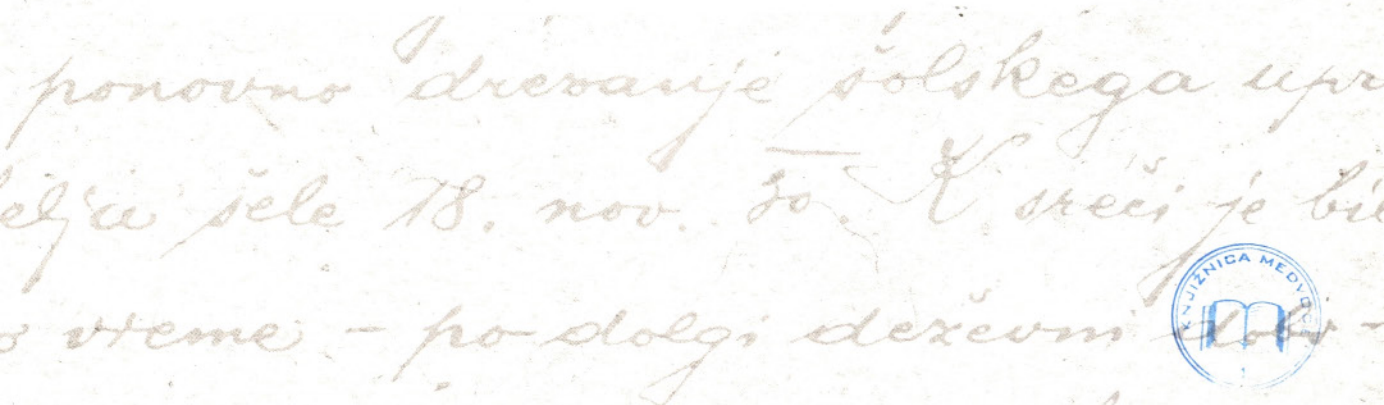 ponovno drevanje šolskega upr
elju šele 18. nov. 30. K sreči je bil
o vreme - po dolgi deževni dobi -
KNJIŽNICA MEDVODE
1